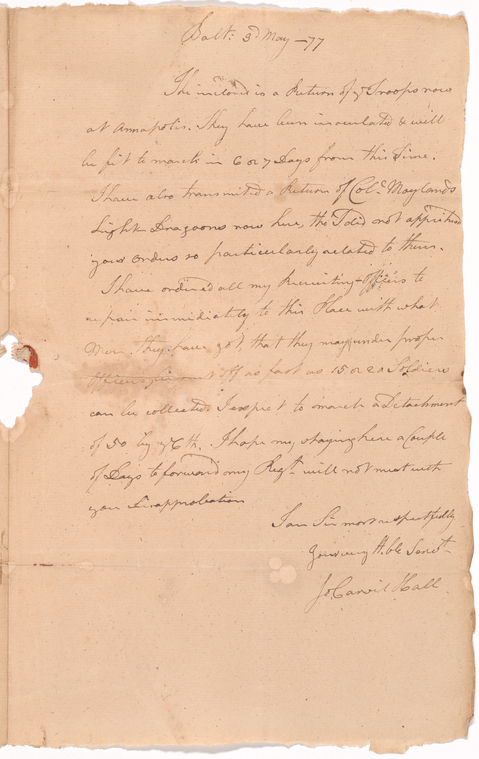 Balt: 3d May — 77
The inclosed is a Return of ye Troops now
at Annapolis. They have been inoculated & will
be fit to march in 6 or 7 Days from this Time.
I have also transmitted a Return of Colo. Moylands
Light Dragoons now here, tho' I did not apprehend
your Orders so particularly related to them.
I have ordered all my Recruiting Officers to
repair immediately to this Place with what
Men they have got, that they may under proper
Officers off as fast as 15 or 20 Soldiers
can be collected. I expect to march a Detachment
of 50 by ye 6th. I hope my staying here a Couple
of Days to forward my Regt. will not meet with
your Disapprobation
I am Sir most respectfully
Your very Hble Servt.
Jo Carvil Hall